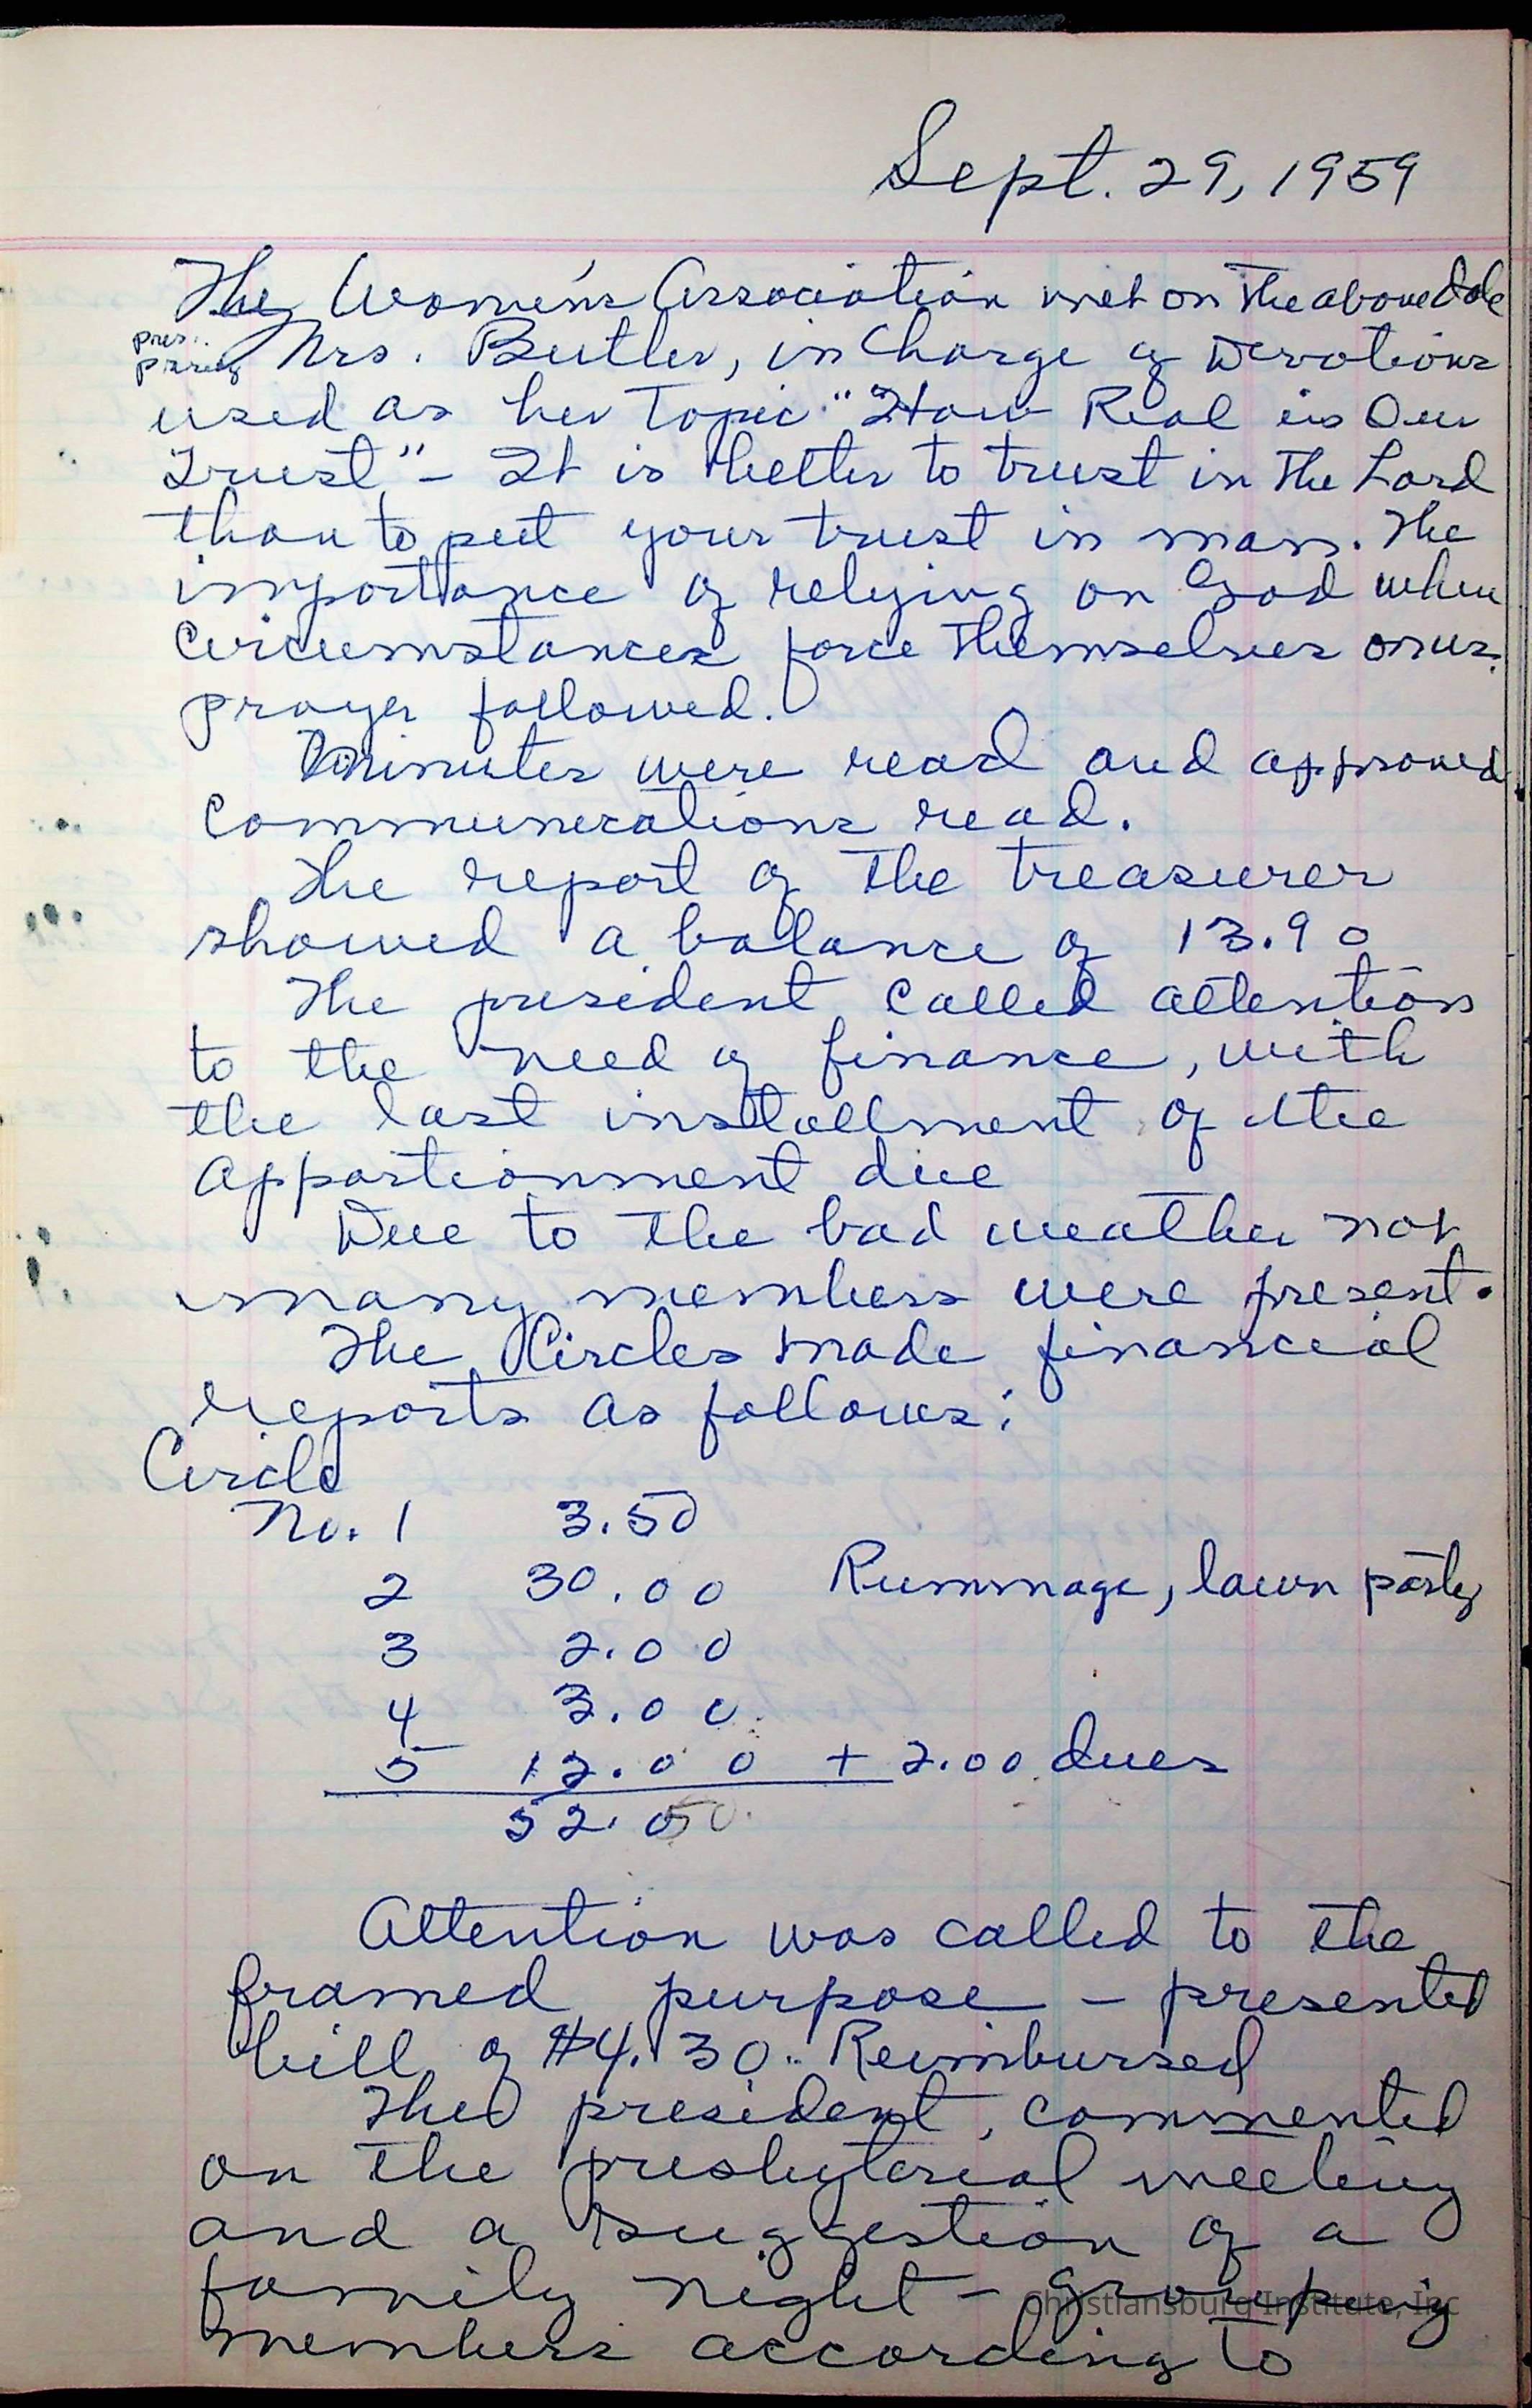 Sept. 29, 1959
The Women's Association met on the above date
pres..
Mrs. Butler, in Charge of Devotions
used as her Topic "How Real is Our
Trust" - It is better to trust in the Lord
than to put your trust in man. The
importance of relying on God when
Circumstances force themselves on us.
prayer followed.
Minutes were read and approved
Communications read.
The report of the treasurer
showed a balance of 13.90
The president called attention
to the need of finance, with
the last installment of the
apportionment due
Due to the bad weather not
many members were present.
The Circles made financial
reports as follows:
Circle
No. 1 3.50
2 30.00 Rummage, lawn party
3 2.00
4 3.00
5 12.00 + 2.00 dues
52.50
Attention was called to the
framed purpose - presented
bill of $4.30. Reimbursed
The president commented
on the presbyterial meeting
and a suggestion of a
family night - grouping
members according to
Christiansburg Institute, Inc